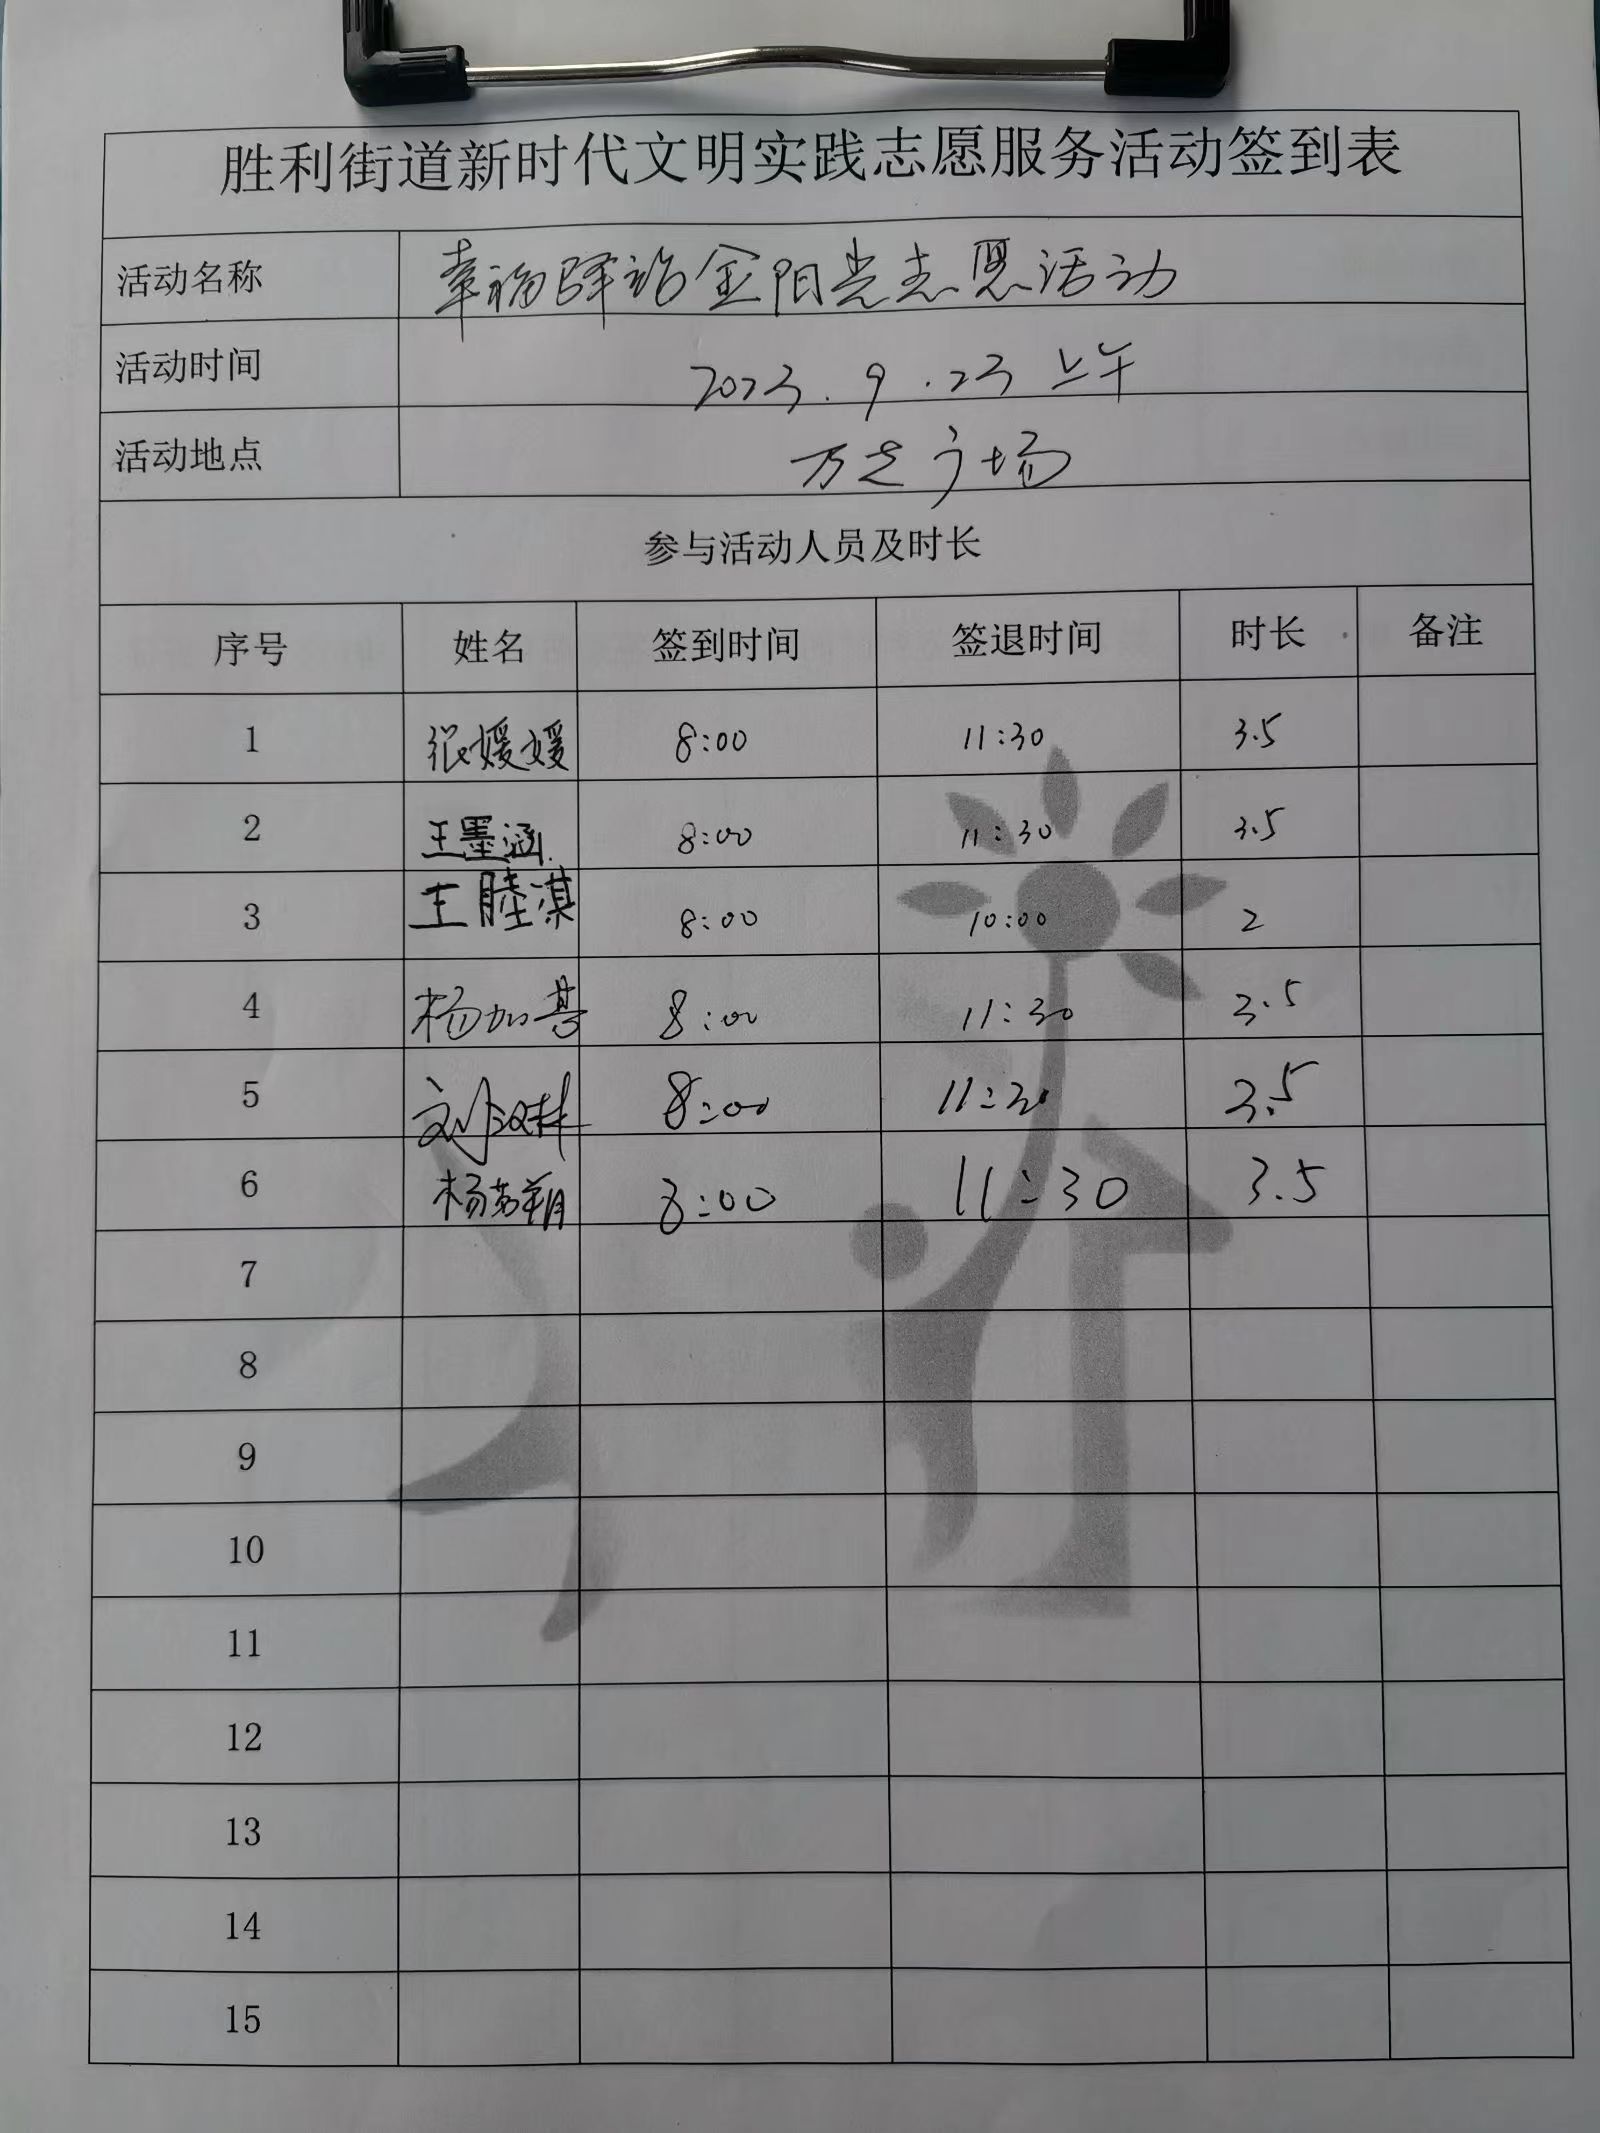 胜利街道新时代文明实践志愿服务活动签到表
活动名称 幸福驿站金阳光志愿活动
活动时间 2023.9.23 上午
活动地点 万达广场
参与活动人员及时长
序号 姓名 签到时间 签退时间 时长 备注
1 张媛媛 8:00 11:30 3.5
2 王墨涵 8:00 11:30 3.5
3 王睦淇 8:00 10:00 2
4 杨加 8:00 11:30 3.5
5 刘 8:00 11:30 3.5
6 杨 8:00 11:30 3.5
7
8
9
10
11
12
13
14
15